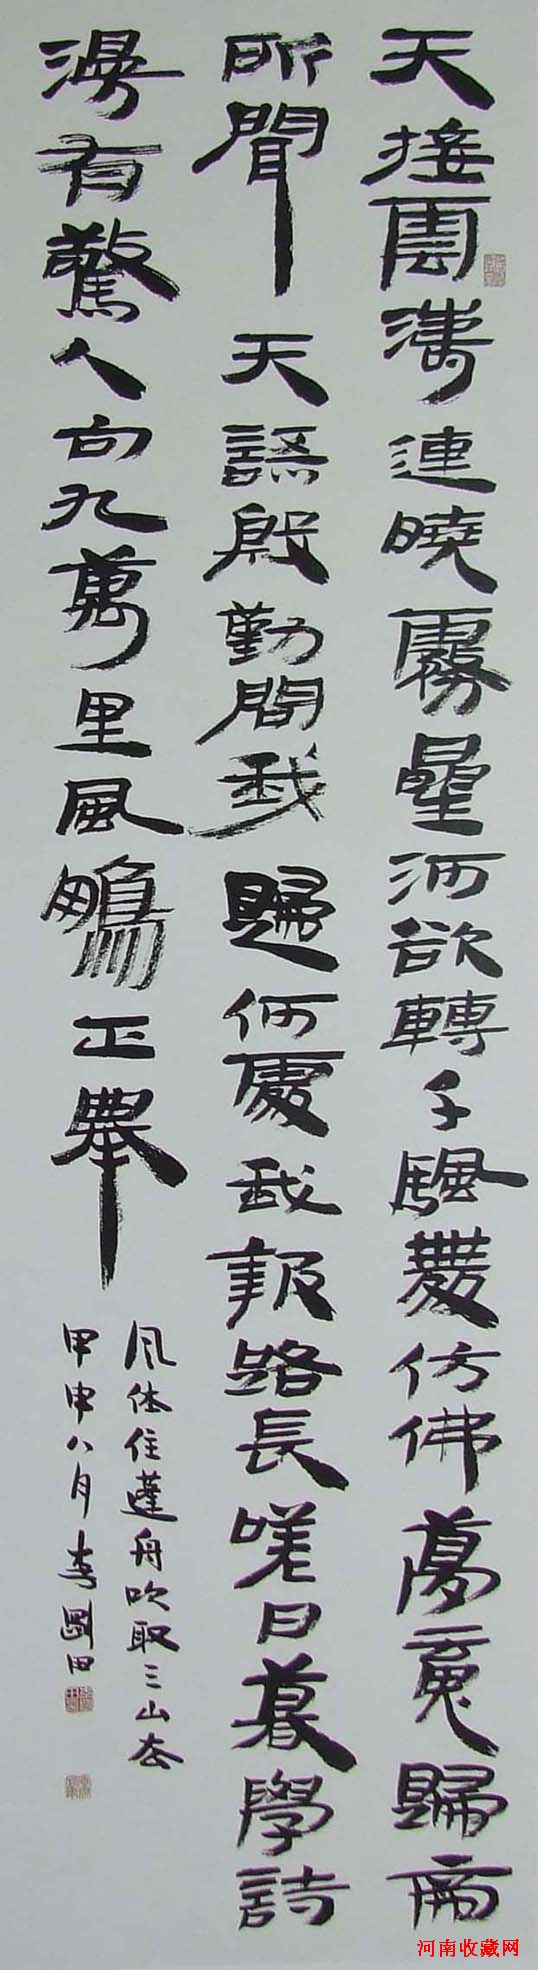 天接雲濤連曉霧曐河欲轉千颿舞仿佛夢魂歸帝
所聞天語殷勤問我歸何處我報路長嗟日暮學詩
漫有驚人句九萬里風鵬正舉
風休住蓬舟吹取三山去
甲申八月李剛田
河南收藏网